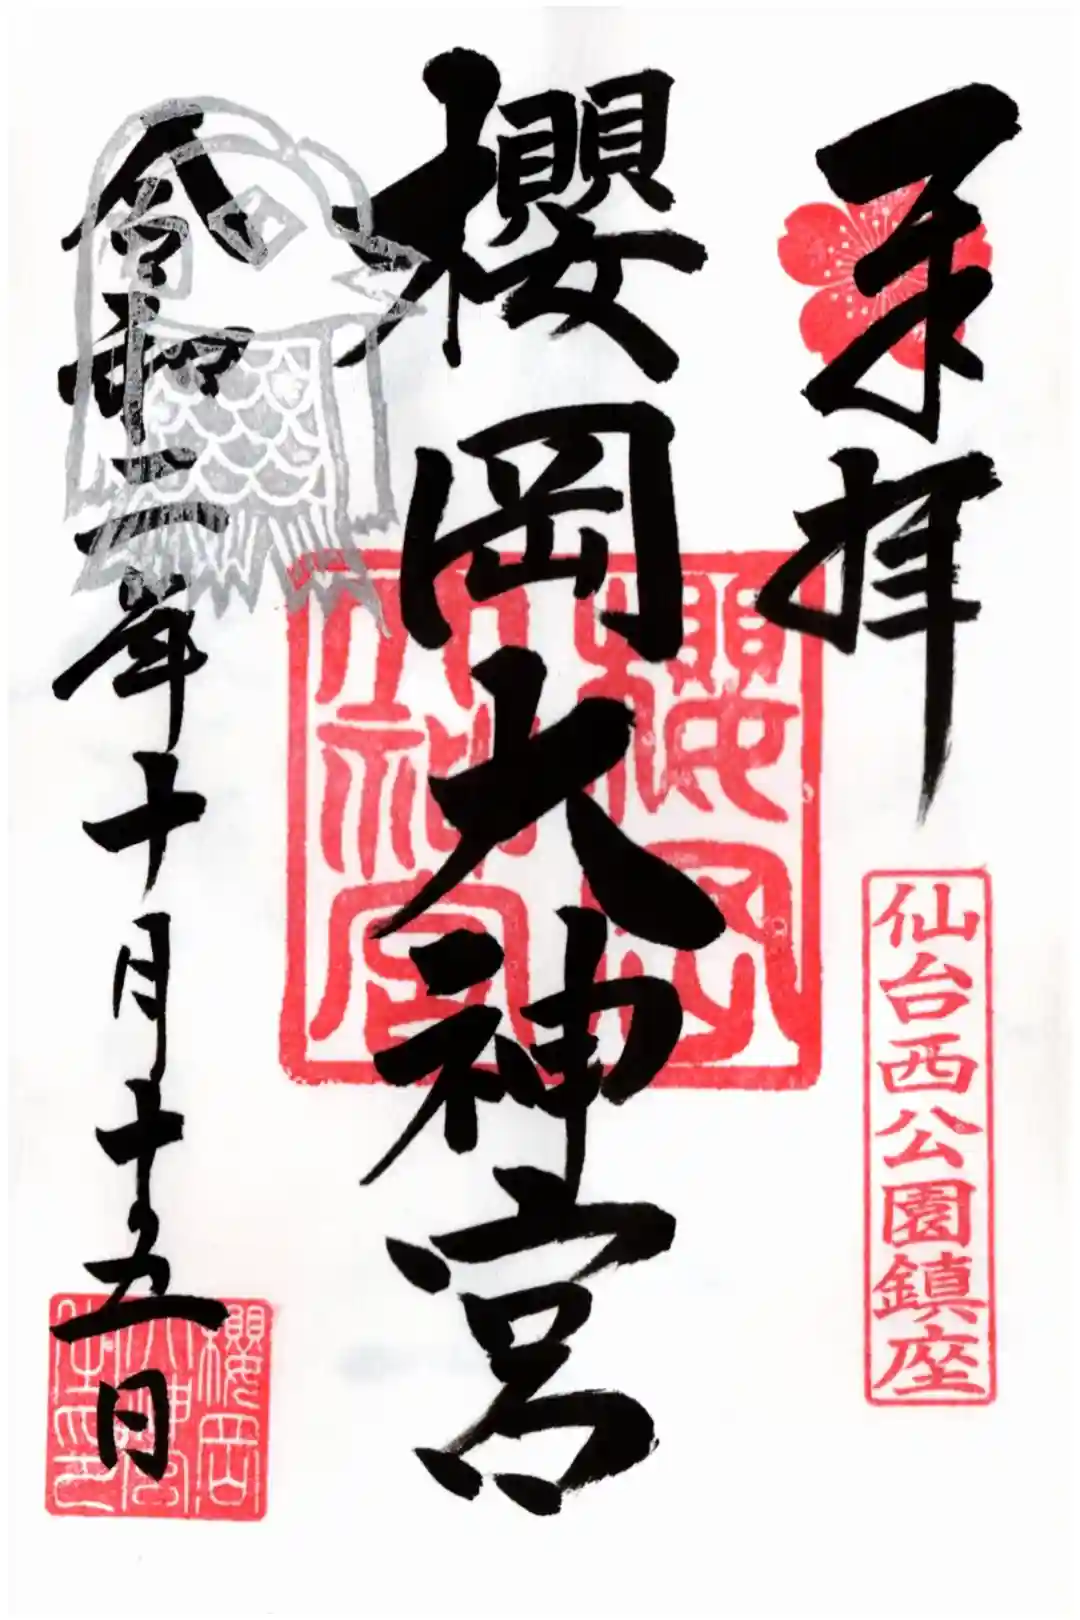 奉拝
仙台西公園鎮座
櫻岡大神宮
櫻岡
大神宮
令和二年十月十五日
櫻岡
大神宮